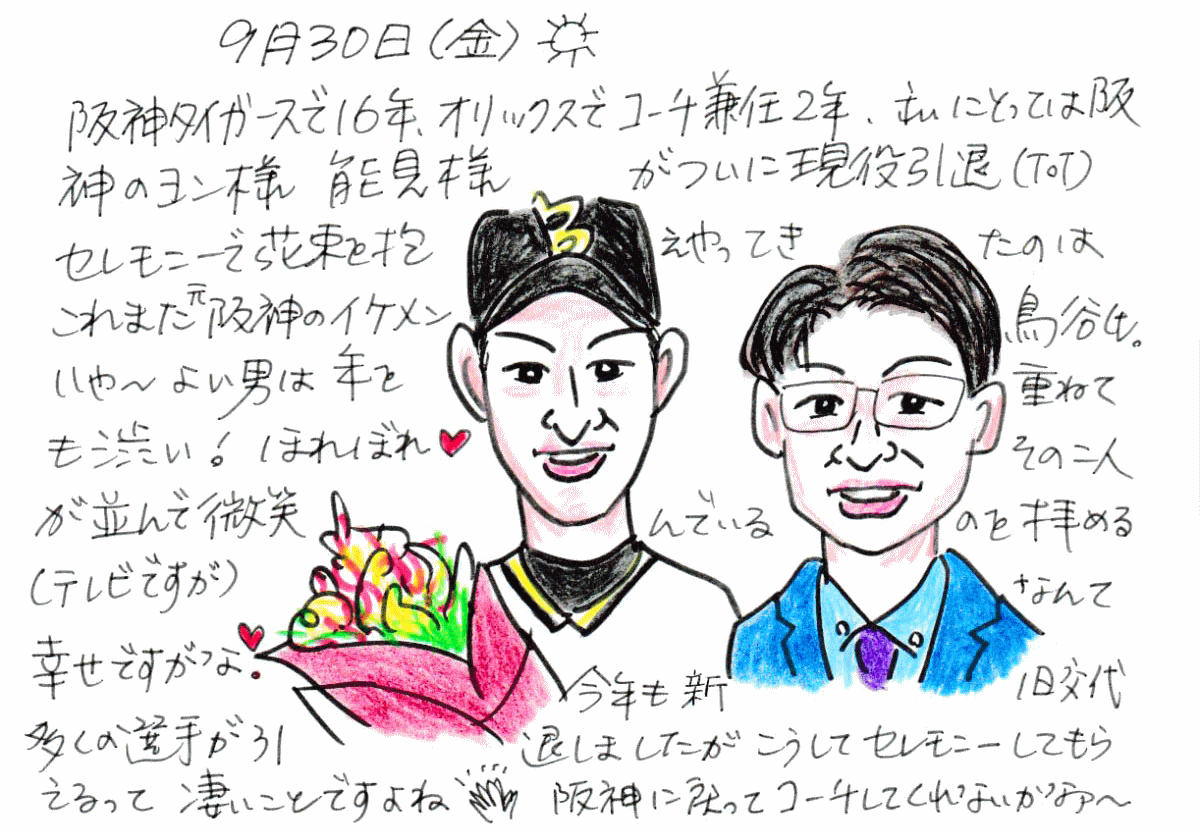 9月30日(金)
阪神タイガースで16年、オリックスでコーチ兼任2年、私にとっては阪
神のヨン様 能見様 がついに現役引退(ToT)
セレモニーで花束を抱 えやってき たのは
これまた元阪神のイケメン 鳥谷氏。
いや〜よい男は 年を 重ねて
も渋い! ほれぼれ その二人
が並んで微笑 んでいる のを拝める
(テレビですが) なんて
幸せですがな。 今年も新 旧交代
多くの選手が引 退しましたがこうしてセレモニーしてもら
えるって 凄いことですよね 阪神に戻ってコーチしてくれないかなァ〜